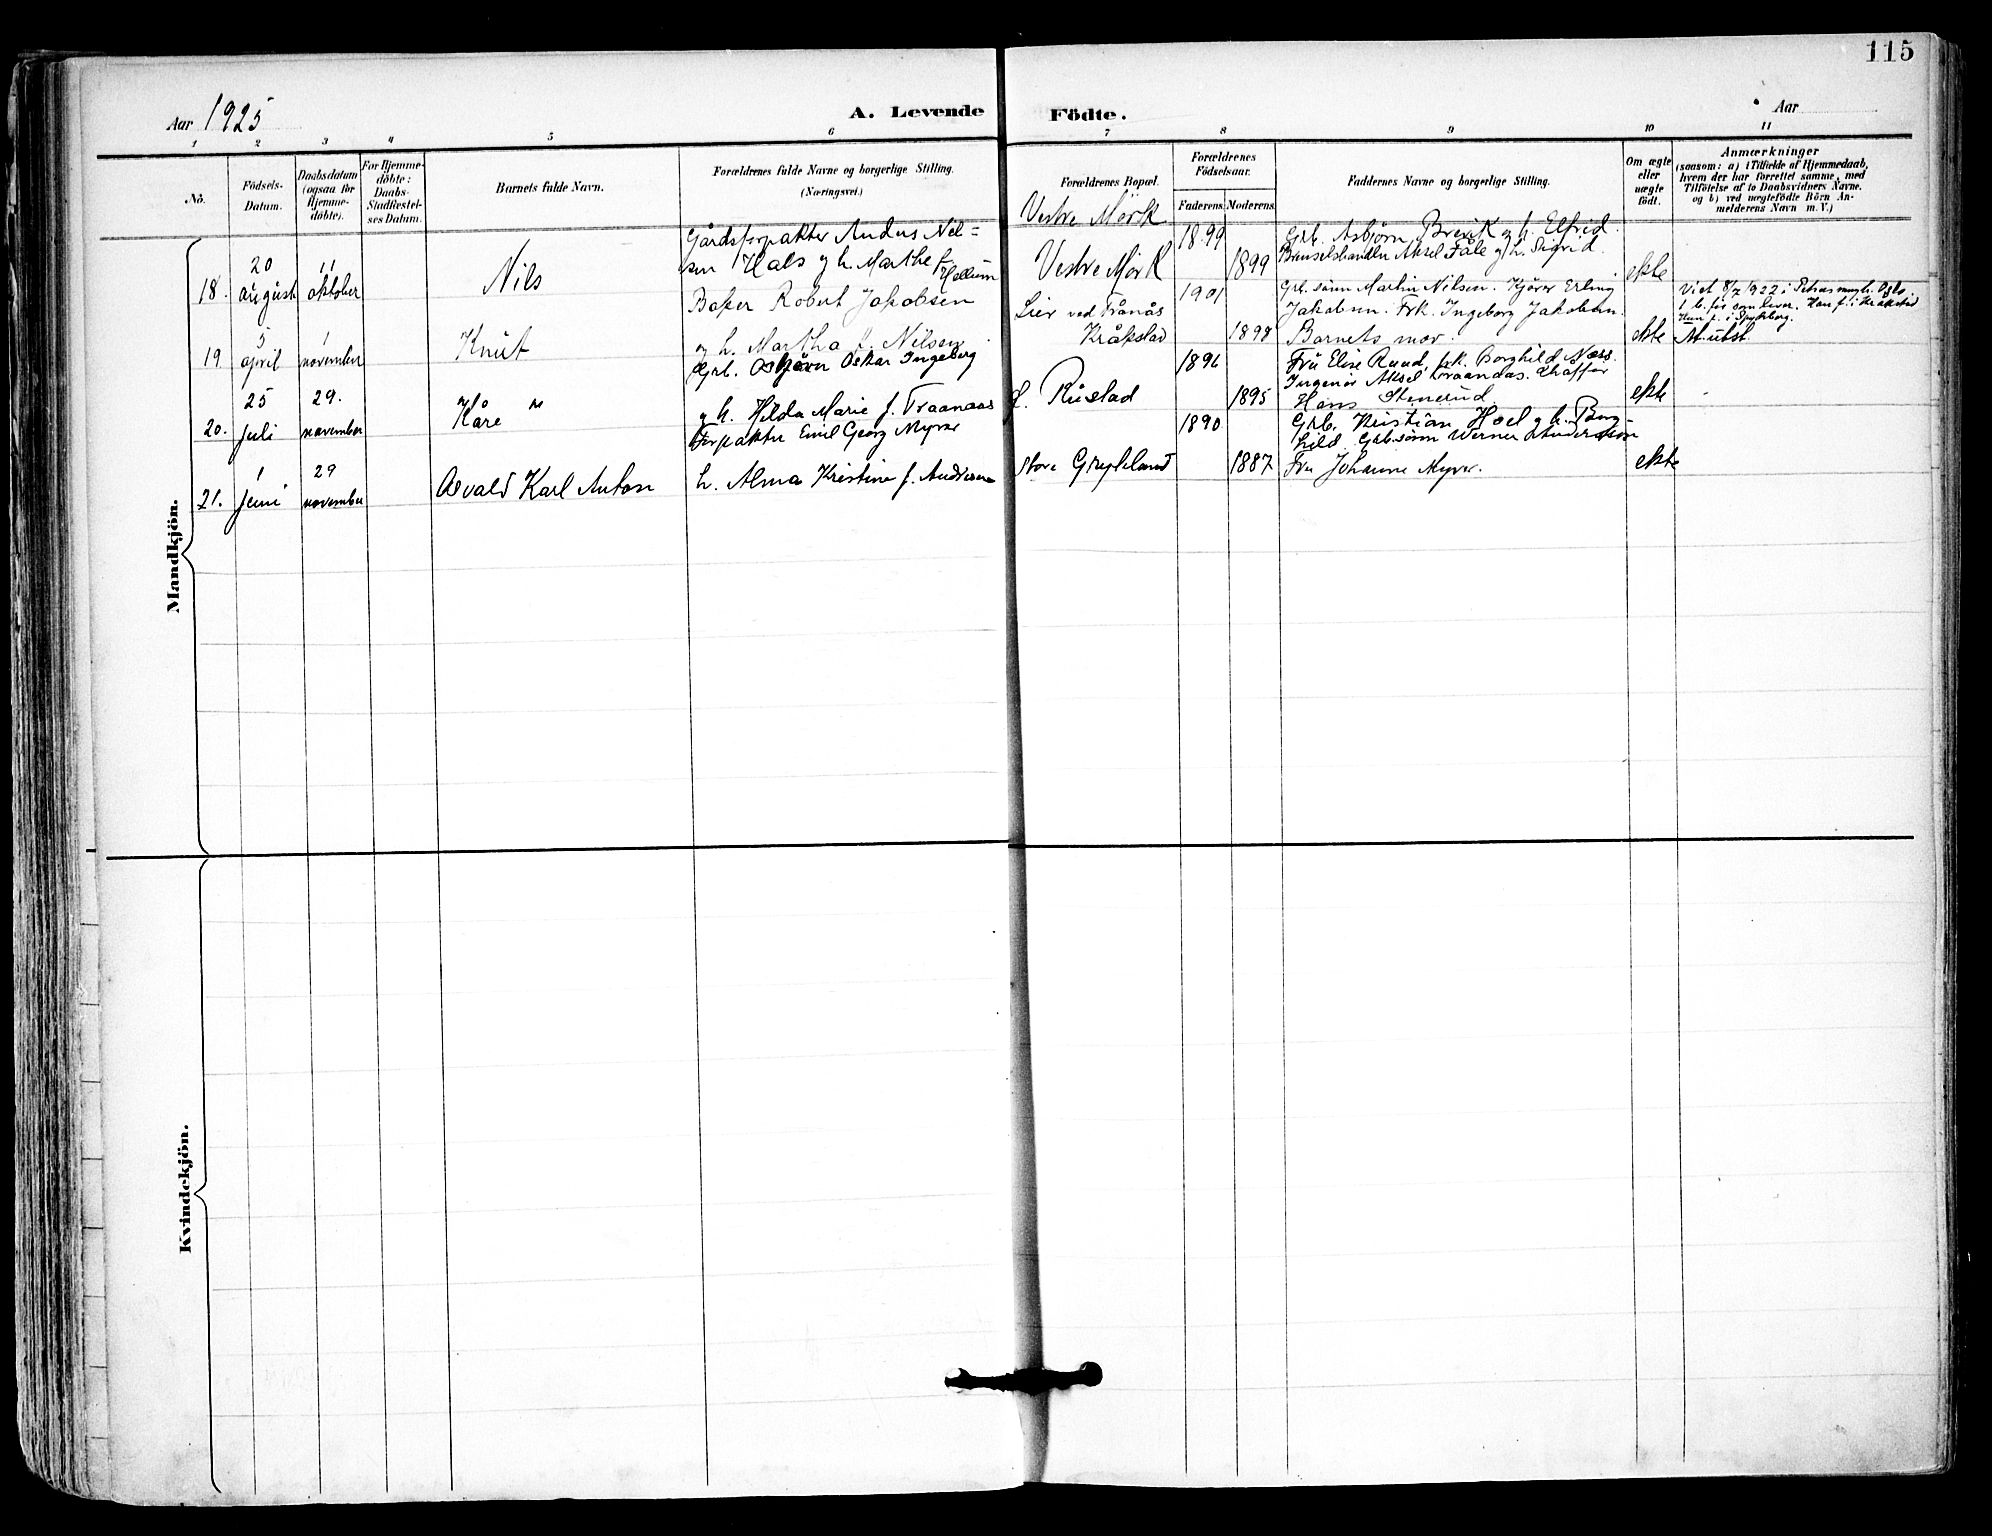 115
Aar 1925
A. Levende Födte.
Aar
1 2 3 4 5 6 7 8 9 10 11
No.
Födsels-Datum.
Daabsdatum (ogsaa for Hjemme-döbte).
For Hjemme-döbte: Daabs-Stadfæstel-ses Datum.
Barnets fulde Navn.
Forældrenes fulde Navne og borgerlige Stilling.
(Næringsvei.)
Forældrenes Bopæl.
Forældrenes Födselsaar.
Faderens. Moderens.
Faddernes Navne og borgerlige Stilling.
Om ægte eller uægte födt.
Anmærkninger
(saasom: a) i Tilfælde af Hjemmedaab,
hvem der har forrettet samme, med
Tilföielse af to Daabsvidners Navne.
og b) ved uægtefödte Börn An-
melderens Navn m. V.)
Mandkjön.
18. 20 august 11 oktober
Nils
Gårdsforpakter Anders Nil-
sen Hals og h. Marthe f. Hellum
Vestre Mörk
Vestre Mörk
1899 1899
Grb. Asbjørn Brevik og h. Elfrid.
Brenselshandler Aksel Fåle og h. Sigrid.
ekte
19 5 april 1 november
Knut
Baker Robert Jakobsen
og h. Martha f. Nilsen
Lier ved Trånås
Kråkstad
1901 1898
Grb. sønn Martin Nilsen. Kjører Erling
Jakobsen. Frk. Ingeborg Jakobsen.
Barnets mor.
ekte
Viet 8/7 1922 i Petrus mgh. Oslo.
1 b. før som lever. Han f. i Kråkstad
Hun f. i Spydeberg.
At. utst.
20. 25 juli 29. november
Kåre
Grb. Osbjørn Oskar Ingeberg
og h. Hilda Marie f. Traanaas
Rustad
1896 1895
Fru Elise Ruud, frk. Borghild Næss.
Ingeniør Aksel Traanaas. Chaffør
Hans Stenerud.
ekte
21. 1 juni 29 november
Asvald Karl Anton
Forpakter Emil Georg Myrer
h. Alma Kristine f. Andresen
store Gryteland
1890 1887
Grb. Kristian Hoel og h. Borg-
hild. Grb. sønn Werner Andersson
Fru Johanne Myrer.
ekte
Kvindekjön.